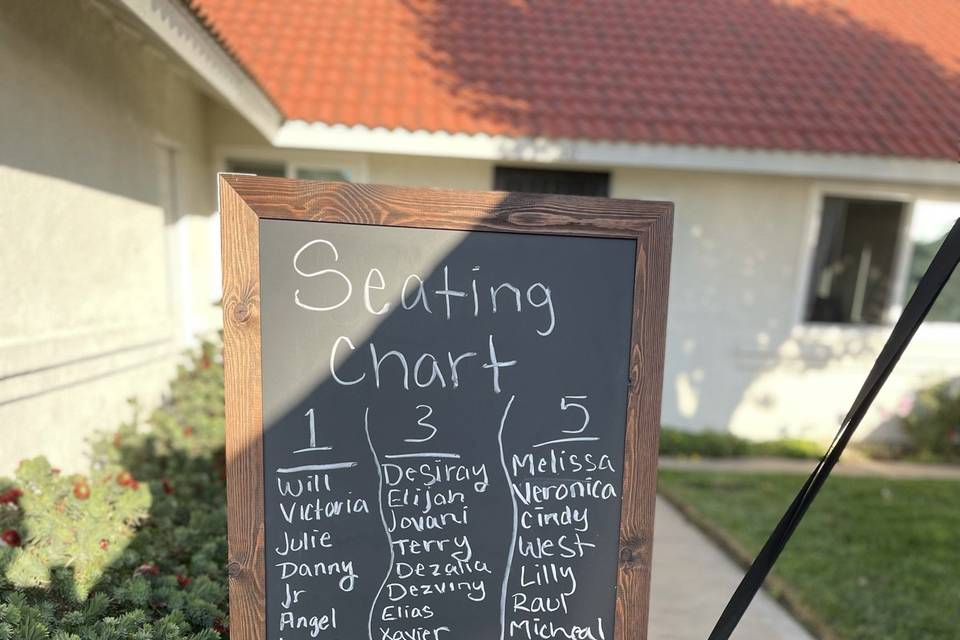 Seating
Chart
1
Will
Victoria
Julie
Danny
Jr
Angel
3
Desiray
Elijah
Jovani
Terry
Dezaria
Dezviny
Elias
Xavier
5
Melissa
Veronica
Cindy
West
Lilly
Raul
Micheal